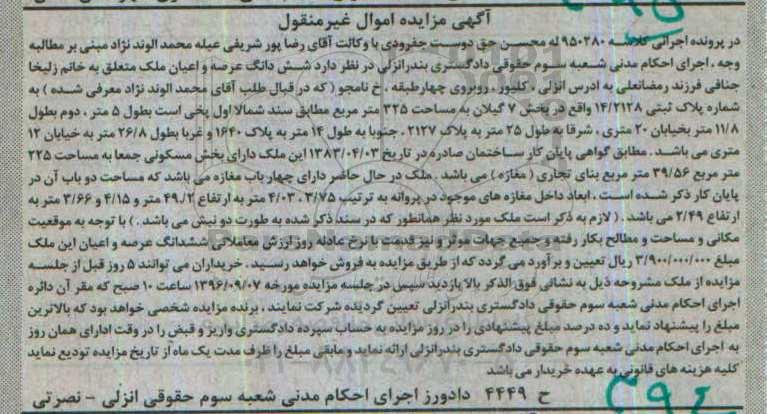 آگهی مزایده اموال غیرمنقول
در پرونده اجرائی کلاسه ۹۵۰۲۸۰ له محسن حق دوست جفرودی با وکالت آقای رضا پور شریفی عیله محمد الوند نژاد مبنی بر مطالبه
وجه ، اجرای احکام مدنی شعبه سوم حقوقی دادگستری بندرانزلی در نظر دارد شش دانگ عرصه و اعیان ملک متعلق به خانم زلیخا
جنافی فرزند رمضانعلی به ادرس انزلی ، کلیور ، روبروی چهارطبقه ، خ نامجو ( که در قبال طلب آقای محمد الوند نژاد معرفی شده ) به
شماره پلاک ثبتی ۱۴/۲۱۲۸ واقع در بخش ۷ گیلان به مساحت ۳۲۵ متر مربع مطابق سند شمالا اول پخی است بطول ۵ متر ، دوم بطول
۱۱/۸ متر بخیابان ۲۰ متری ، شرقا به طول ۲۵ متر به پلاک ۲۱۲۷ ، جنوبا به طول ۱۴ متر به پلاک ۱۶۴۰ و غربا بطول ۲۶/۸ متر به خیابان ۱۲
متری می باشد . مطابق گواهی پایان کار ساختمان صادره در تاریخ ۱۳۸۳/۰۴/۰۳ این ملک دارای بخش مسکونی جمعا به مساحت ۲۲۵
متر مربع ۳۹/۵۶ متر مربع بنای تجاری ( مغازه ) می باشد . ملک در حال حاضر دارای چهار باب مغازه می باشد که مساحت دو باب آن در
پایان کار ذکر شده است . ابعاد داخل مغازه های موجود در پروانه به ترتیب ۴/۰۳ ، ۳/۷۵ متر به ارتفاع ۴۹/۲ متر و ۴/۱۵ و ۳/۶۶ متر به
ارتفاع ۲/۴۹ می باشد . ( لازم به ذکر است ملک مورد نظر همانطور که در سند ذکر شده به طورت دو نبش می باشد . ) با توجه به موقعیت
مکانی و مساحت و مطالح بکار رفته و جمیع جهات موثر و نیز قدمت با نرخ عادله روز ارزش معاملاتی ششدانگ عرصه و اعیان این ملک
مبلغ ۳/۹۰۰/۰۰۰/۰۰۰ ریال تعیین و برآورد می گردد که از طریق مزایده به فروش خواهد رسید . خریداران می توانند ۵ روز قبل از جلسه
مزایده از ملک مشروحه ذیل به نشانی فوق الذکر بالا بازدید سپس در جلسه مزایده مورخه ۱۳۹۶/۰۹/۰۷ ساعت ۱۰ صبح که مقر آن دائره
اجرای احکام مدنی شعبه سوم حقوقی دادگستری بندرانزلی تعیین گردیده شرکت نمایند . برنده مزایده شخصی خواهد بود که بالاترین
مبلغ را پیشنهاد نماید و ده درصد مبلغ پیشنهادی را در روز مزایده به حساب سپرده دادگستری واریز و قبض را در وقت ادارای همان روز
به اجرای احکام مدنی شعبه سوم حقوقی دادگستری بندرانزلی ارائه نماید و مابقی مبلغ را ظرف مدت یک ماه از تاریخ مزایده تودیع نماید
کلیه هزینه های قانونی به عهده خریدار می باشد
ح ۴۴۴۹ دادورز اجرای احکام مدنی شعبه سوم حقوقی انزلی - نصرتی